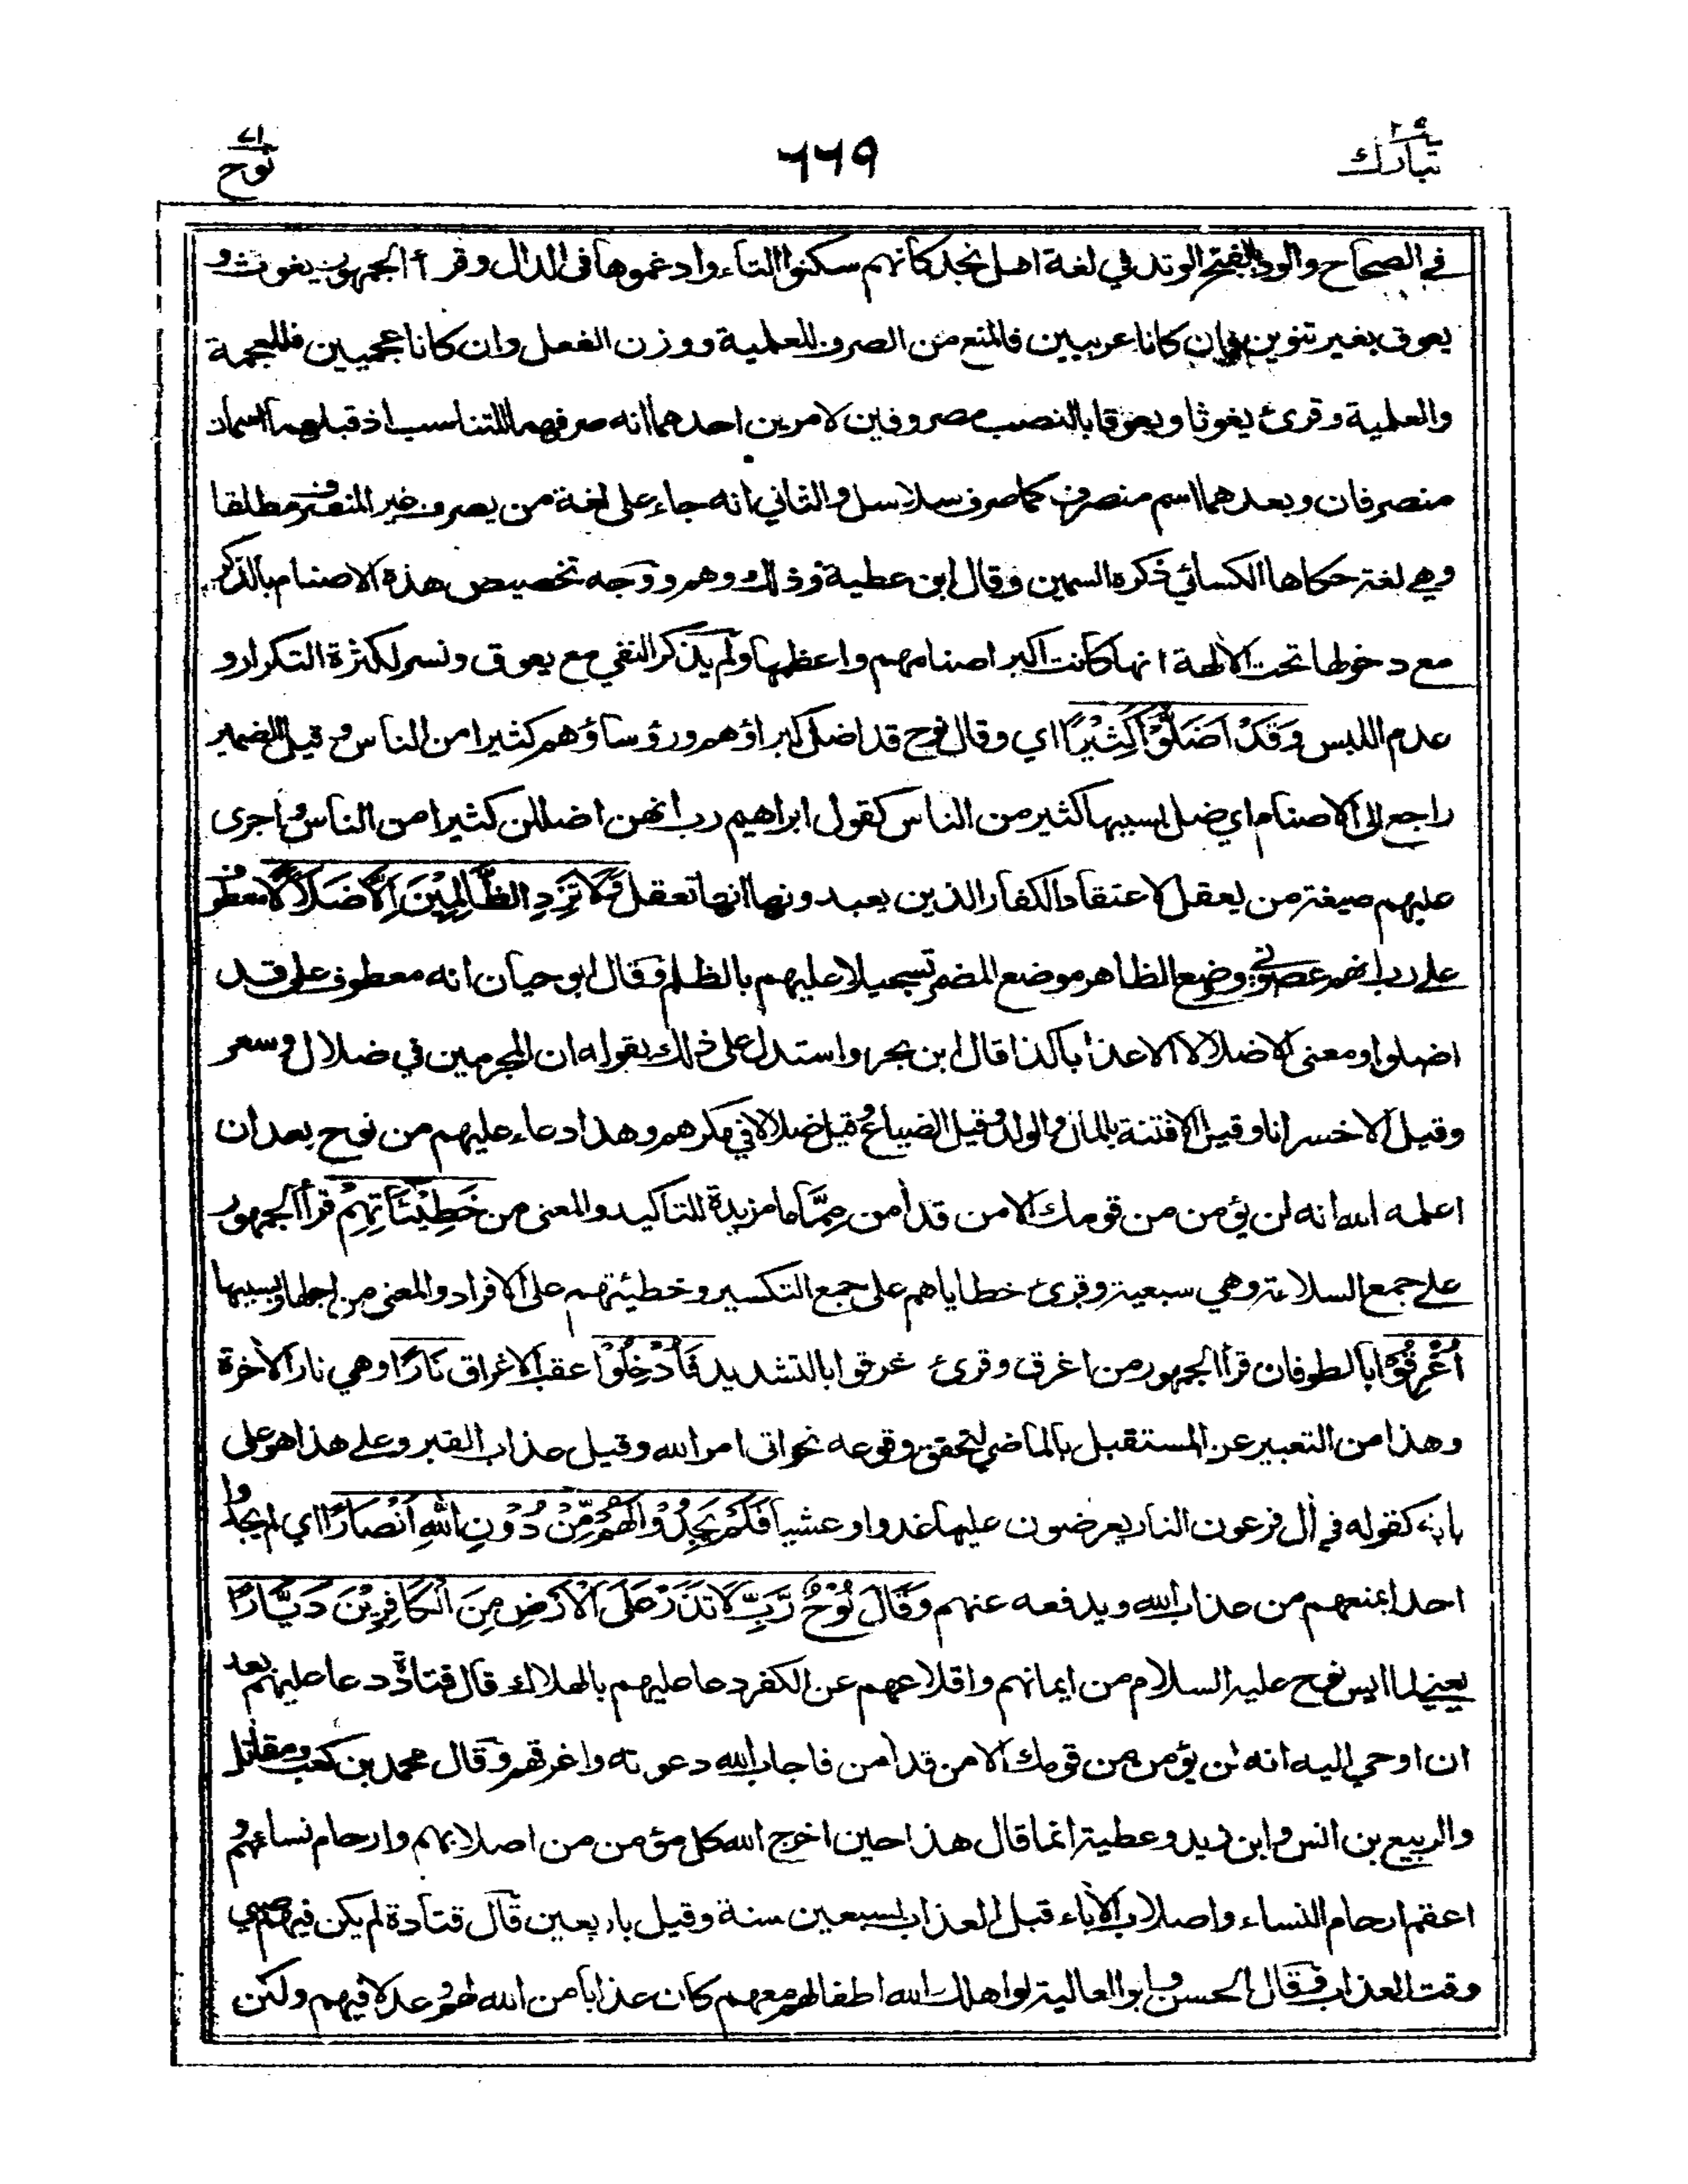 تبارك ٢٩
٦٦٩
نوح ٧١
في الصحاح والود بالفتح الوتد في لغة اهل نجد كانهم سكنوا التاء وادغموها في الدال وقرأ الجمهور يغوث و
يعوق بغير تنوين فان كانا عربيين فالمنع من الصرف للعلمية ووزن الفعل وان كانا عجميين فللعجمة
والعلمية وقرئ يغوثا ويعوقا بالنصب مصروفين لامرين احدهما انه صرفهما للتناسب اذ قبلهما اسمان
منصرفان وبعدهما اسم منصرف كما صرف سلاسل والثاني انه جاء على لغة من يصرف غير المنصرف مطلقا
وهي لغة حكاها الكسائي ذكره السمين وقال ابن عطية وذلك وهم ووجه تخصيص هذه الاصنام بالذكر
مع دخولها تحت الألهة انها كانت اكبر اصنامهم واعظمها ولم يذكر النفي مع يعوق ونسر لكثرة التكرار و
عدم اللبس وَقَدْ اَضَلُّوْا كَثِيْرًا اي وقال نوح قد اضل كبراؤهم ورؤساؤهم كثيرا من الناس وقيل الضمير
راجع الى الاصنام اي ضل بسببها كثير من الناس كقول ابراهيم رب انهن اضللن كثيرا من الناس واجرى
عليهم صيغة من يعقل لاعتقاد الكفار الذين يعبدونها انها تعقل وَلَا تَزِدِ الظّٰلِمِيْنَ اِلَّا ضَلَالًا معطوف
على رب انهم عصوني ووضع الظاهر موضع المضمر تسجيلا عليهم بالظلم وقال ابو حيان انه معطوف على قد
اضلوا ومعنى الا ضلالا الا عذابا كذا قال ابن بحر واستدل على ذلك بقوله ان المجرمين في ضلال وسعر
وقيل الا خسرانا وقيل الا فتنة بالمال والولد وقيل الضياع وقيل ضلالا في مكرهم وهذا دعاء عليهم من نوح بعد ان
اعلمه الله انه لن يؤمن من قومك الا من قد أمن مِمَّا ما مزيدة للتاكيد والمعنى من خَطِيْئَاتِهِمْ قرأ الجمهور
على جمع السلامة وهي سبعية وقرئ خطاياهم على جمع التكسير وخطيئتهم على الافراد والمعنى من اجلها وبسببها
اُغْرِقُوْا بالطوفان قرأ الجمهور من اغرق وقرئ غرقوا بالتشديد فَاُدْخِلُوْا عقب الاغراق نَارًا وهي نار الأخرة
وهذا من التعبير عن المستقبل بالماضي لتحقق وقوعه نحو اتى امر الله وقيل عذاب القبر وعلى هذا هو على
بابه كقوله في أل فرعون النار يعرضون عليها غدوا وعشيا فَلَمْ يَجِدُوْا لَهُمْ مِّنْ دُوْنِ اللّٰهِ اَنْصَارًا اي لم يجدوا
احدا يمنعهم من عذاب الله ويدفعه عنهم وَقَالَ نُوْحٌ رَّبِّ لَا تَذَرْ عَلَى الْاَرْضِ مِنَ الْكَافِرِيْنَ دَيَّارًا
يعني لما ايس نوح عليه السلام من ايمانهم واقلاعهم عن الكفر دعا عليهم بالهلاك قال قتادة دعا عليهم بعد
ان اوحي اليه انه لن يؤمن من قومك الا من قد أمن فاجاب الله دعوته واغرقهم وقال محمد بن كعب ومقاتل
والربيع بن انس وابن زيد وعطية انما قال هذا حين اخرج الله كل مؤمن من اصلابهم وارحام نسائهم و
اعقم ارحام النساء واصلاب الأباء قبل العذاب بسبعين سنة وقيل باربعين قال قتادة لم يكن فيهم صبي
وقت العذاب وقال الحسن وابو العالية لو اهلك الله اطفالهم معهم كان عذابا من الله لهم وعدلا فيهم ولكن